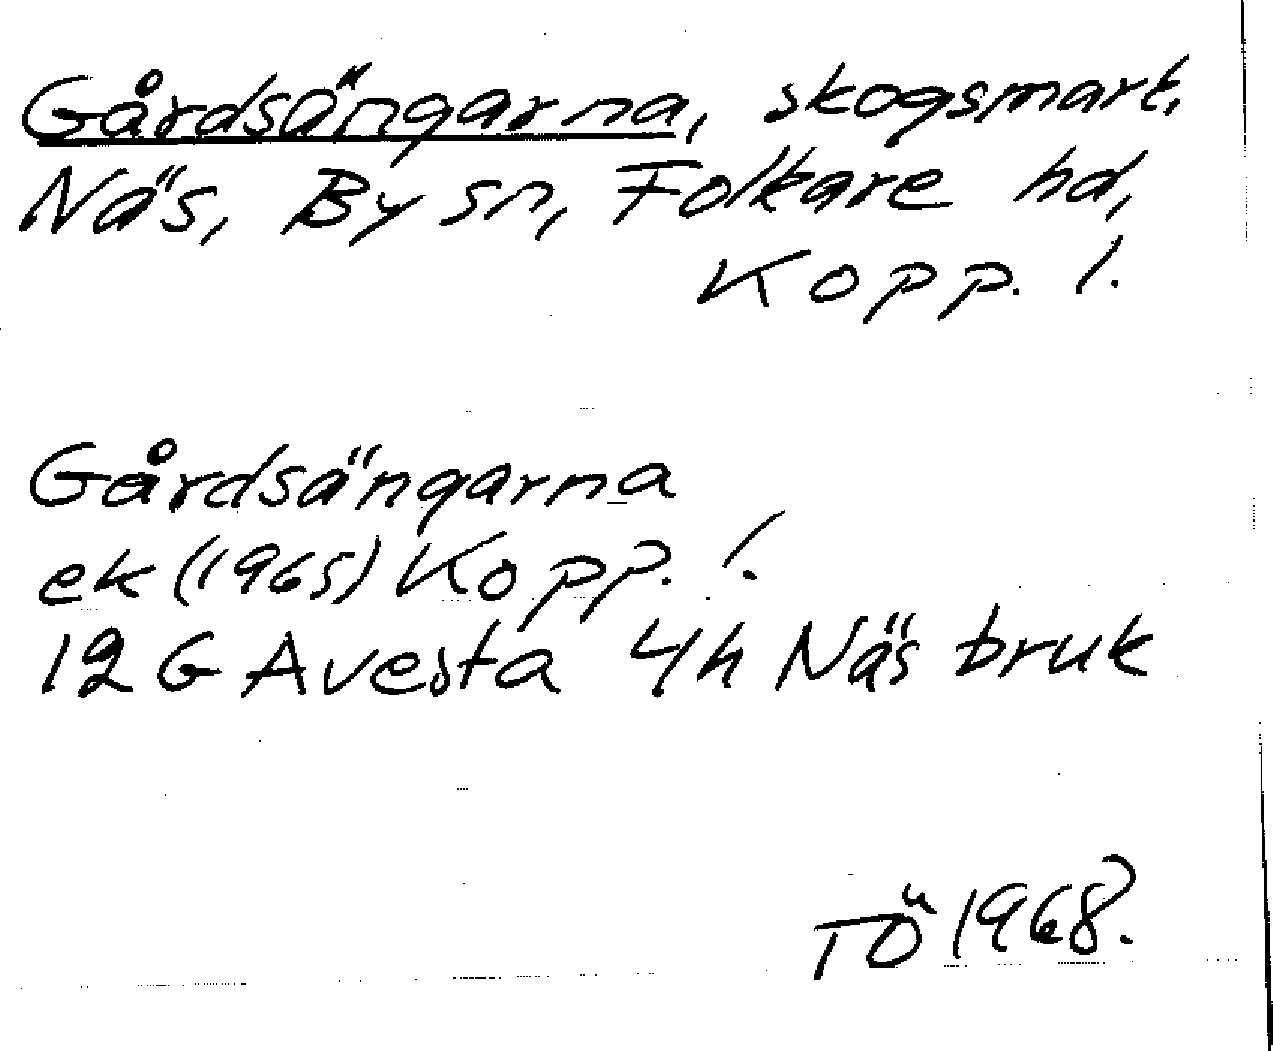 Gårdsängarna, skogsmark,
Näs, By sn, Folkare hd,
Kopp. l.
Gårdsängarna
ek (1965) Kopp. l.
12 G Avesta 4h Näs bruk
TÖ 1968.